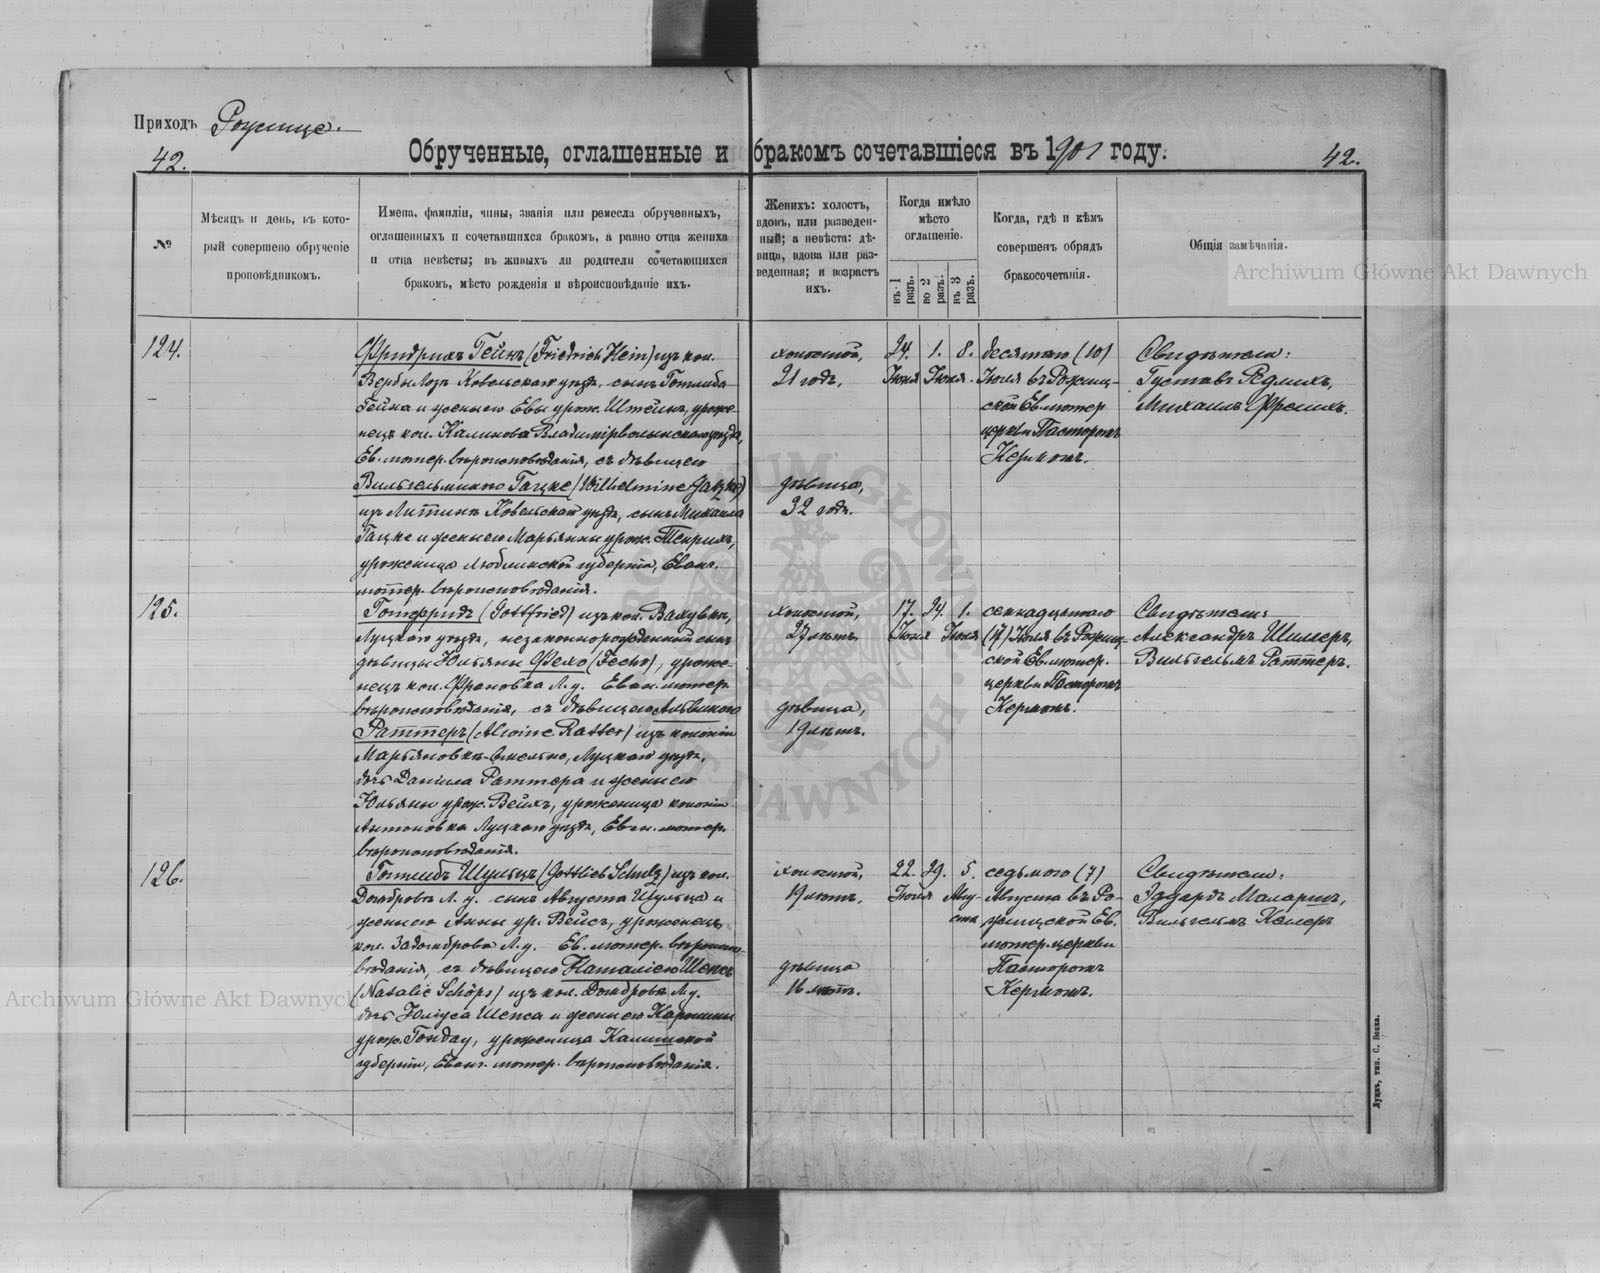 Приходъ Рожище.
42.
Обрученные, оглашенные и бракомъ сочетавшіеся въ 1901 году.
42.
№
Мѣсяцъ и день, въ кото-
рый совершено обрученіе
проповѣдникомъ.
Имена, фамиліи, чины, званія или ремесла обрученныхъ,
оглашенныхъ и сочетавшихся бракомъ, а равно отца жениха
и отца невѣсты; въ живыхъ ли родители сочетающихся
бракомъ, мѣсто рожденія и вѣроисповѣданіе ихъ.
Женихъ: холостъ,
вдовъ, или разведен-
ный; а невѣста: дѣ-
вица, вдова или раз-
веденная; и возрастъ
ихъ.
Когда имѣло
мѣсто
оглашеніе.
въ 1 разъ.
во 2 разъ.
въ 3 разъ.
Когда, гдѣ и кѣмъ
совершенъ обрядъ
бракосочетанія.
Общія замѣчанія.
124.
Фридрихъ Гейнъ (Friedrich Hein) изъ кол.
Вербы Лозъ Ковельскаго уѣзда, сынъ Готлиба
Гейна и женыего Евы урож. Штейнъ, уроже-
нецъ кол. Калиновa Владимірволынскаго уѣзда,
Ев. лютер. вѣроисповѣданія, съ дѣвицею
Вильгельминою Гацке (Wilhelmine Gatzke)
изъ Литинъ Ковельскаго уѣзда, сынъ Михаила
Гацке и женыего Марьянны урож.
уроженица Люблинской губерніи, Еван.
лютер. вѣроисповѣданія.
холостой,
21 годъ,
дѣвица,
32 года.
24. 1. 8.
Іюня Іюля.
десятаго (10)
Іюля въ Рожищ-
ской Ев. лютер
церкви Пасторомъ
Кермомъ.
Свидѣтели:
Густавъ Редлихъ,
Михаилъ Фрелихъ.
125.
Готфридъ (Gottfried) изъ кол. Валувки,
Луцкаго уѣзда, незаконнорожденный сынъ
дѣвицы Юльяны Фехо (Fecho), уроже-
нецъ кол. Франовка Л. у. Еван. лютер.
вѣроисповѣданія, съ дѣвицею Альвиною
Раттеръ (Alwine Ratter) изъ колоніи
Марьяновкъ-Омельно, Луцкаго уѣзда,
дочь Даніила Раттера и женыего
Юльяны урож. Вейхъ, уроженица колоніи
Антоновка Луцкаго уѣзда, Еван. лютер.
вѣроисповѣданія.
холостой,
27 лѣтъ.
дѣвица,
19 лѣтъ.
17. 24. 1.
Іюня Іюля
семнадцатаго
(17) Іюля въ Рожищ-
ской Ев. лютер.
церкви Пасторомъ
Кермомъ.
Свидѣтели:
Александръ Шиллеръ,
Вильгельмъ Раттеръ.
126.
Готлибъ Шульцъ (Gottlieb Schulz) изъ кол.
Домбровъ Л. у. сынъ Августа Шульца и
женыего Анны ур. Вейсъ, уроженецъ
кол. Задомброва Л. у. Ев. лютер. вѣроиспо-
вѣданія, съ дѣвицею Наталіею Шепсъ
(Natalie Schöps) изъ кол. Домбровъ Л. у.
дочь Юліуса Шепса и женыего Каролины
урож. Гондау, уроженица Калишской
губерніи, Еван. лютер. вѣроисповѣданія.
холостой,
19 лѣтъ.
дѣвица
16 лѣтъ.
22. 29. 5.
Іюля Авгу-
ста
седьмого (7)
Августа въ Ро-
жищской Ев.
лютер. церкви
Пасторомъ
Кермомъ.
Свидѣтели:
Эдуардъ Маларшъ,
Вильгельмъ Келеръ
Луцкъ, тип. С. Бекка.
Archiwum Główne Akt Dawnych
Archiwum Główne Akt Dawnych